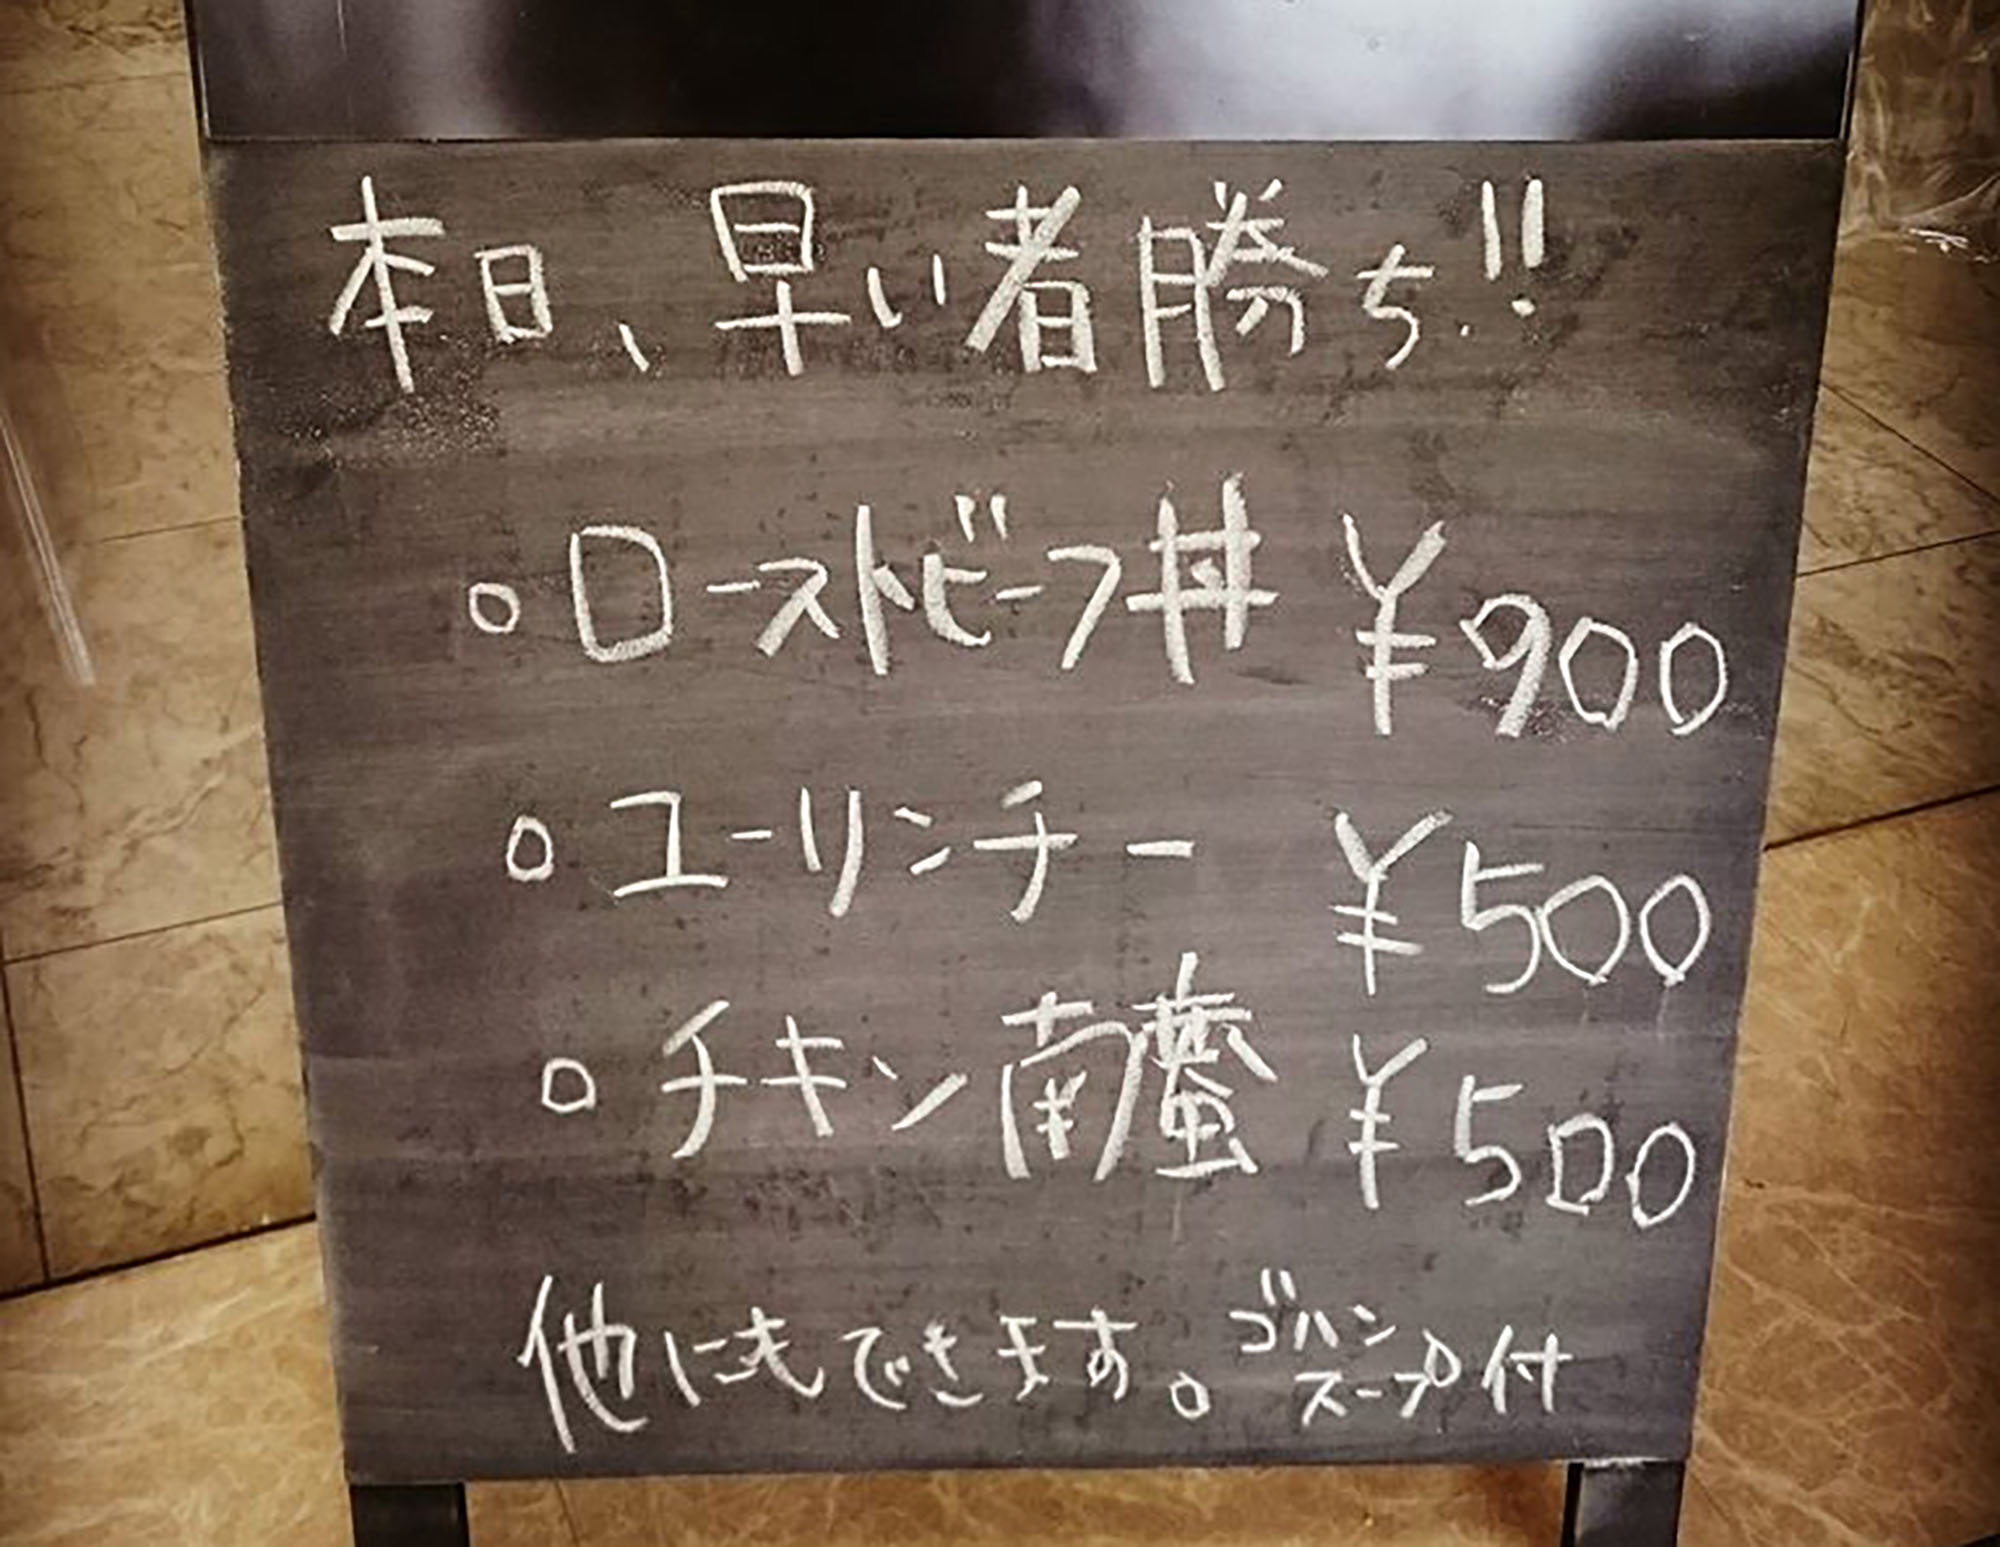 本日、早い者勝ち!!
○ローストビーフ丼 ¥900
○ユーリンチー ¥500
○チキン南蛮 ¥500
他にもできます。ゴハン
スープ付